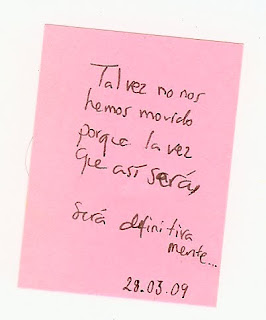 Tal vez no nos
hemos movido
porque la vez
que así será,
será definitiva
mente...
28.03.09